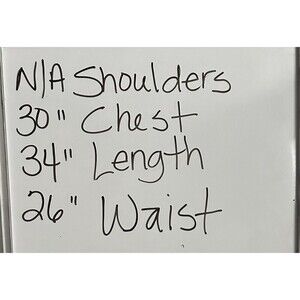 N/A Shoulders
30" Chest
34" Length
26" Waist